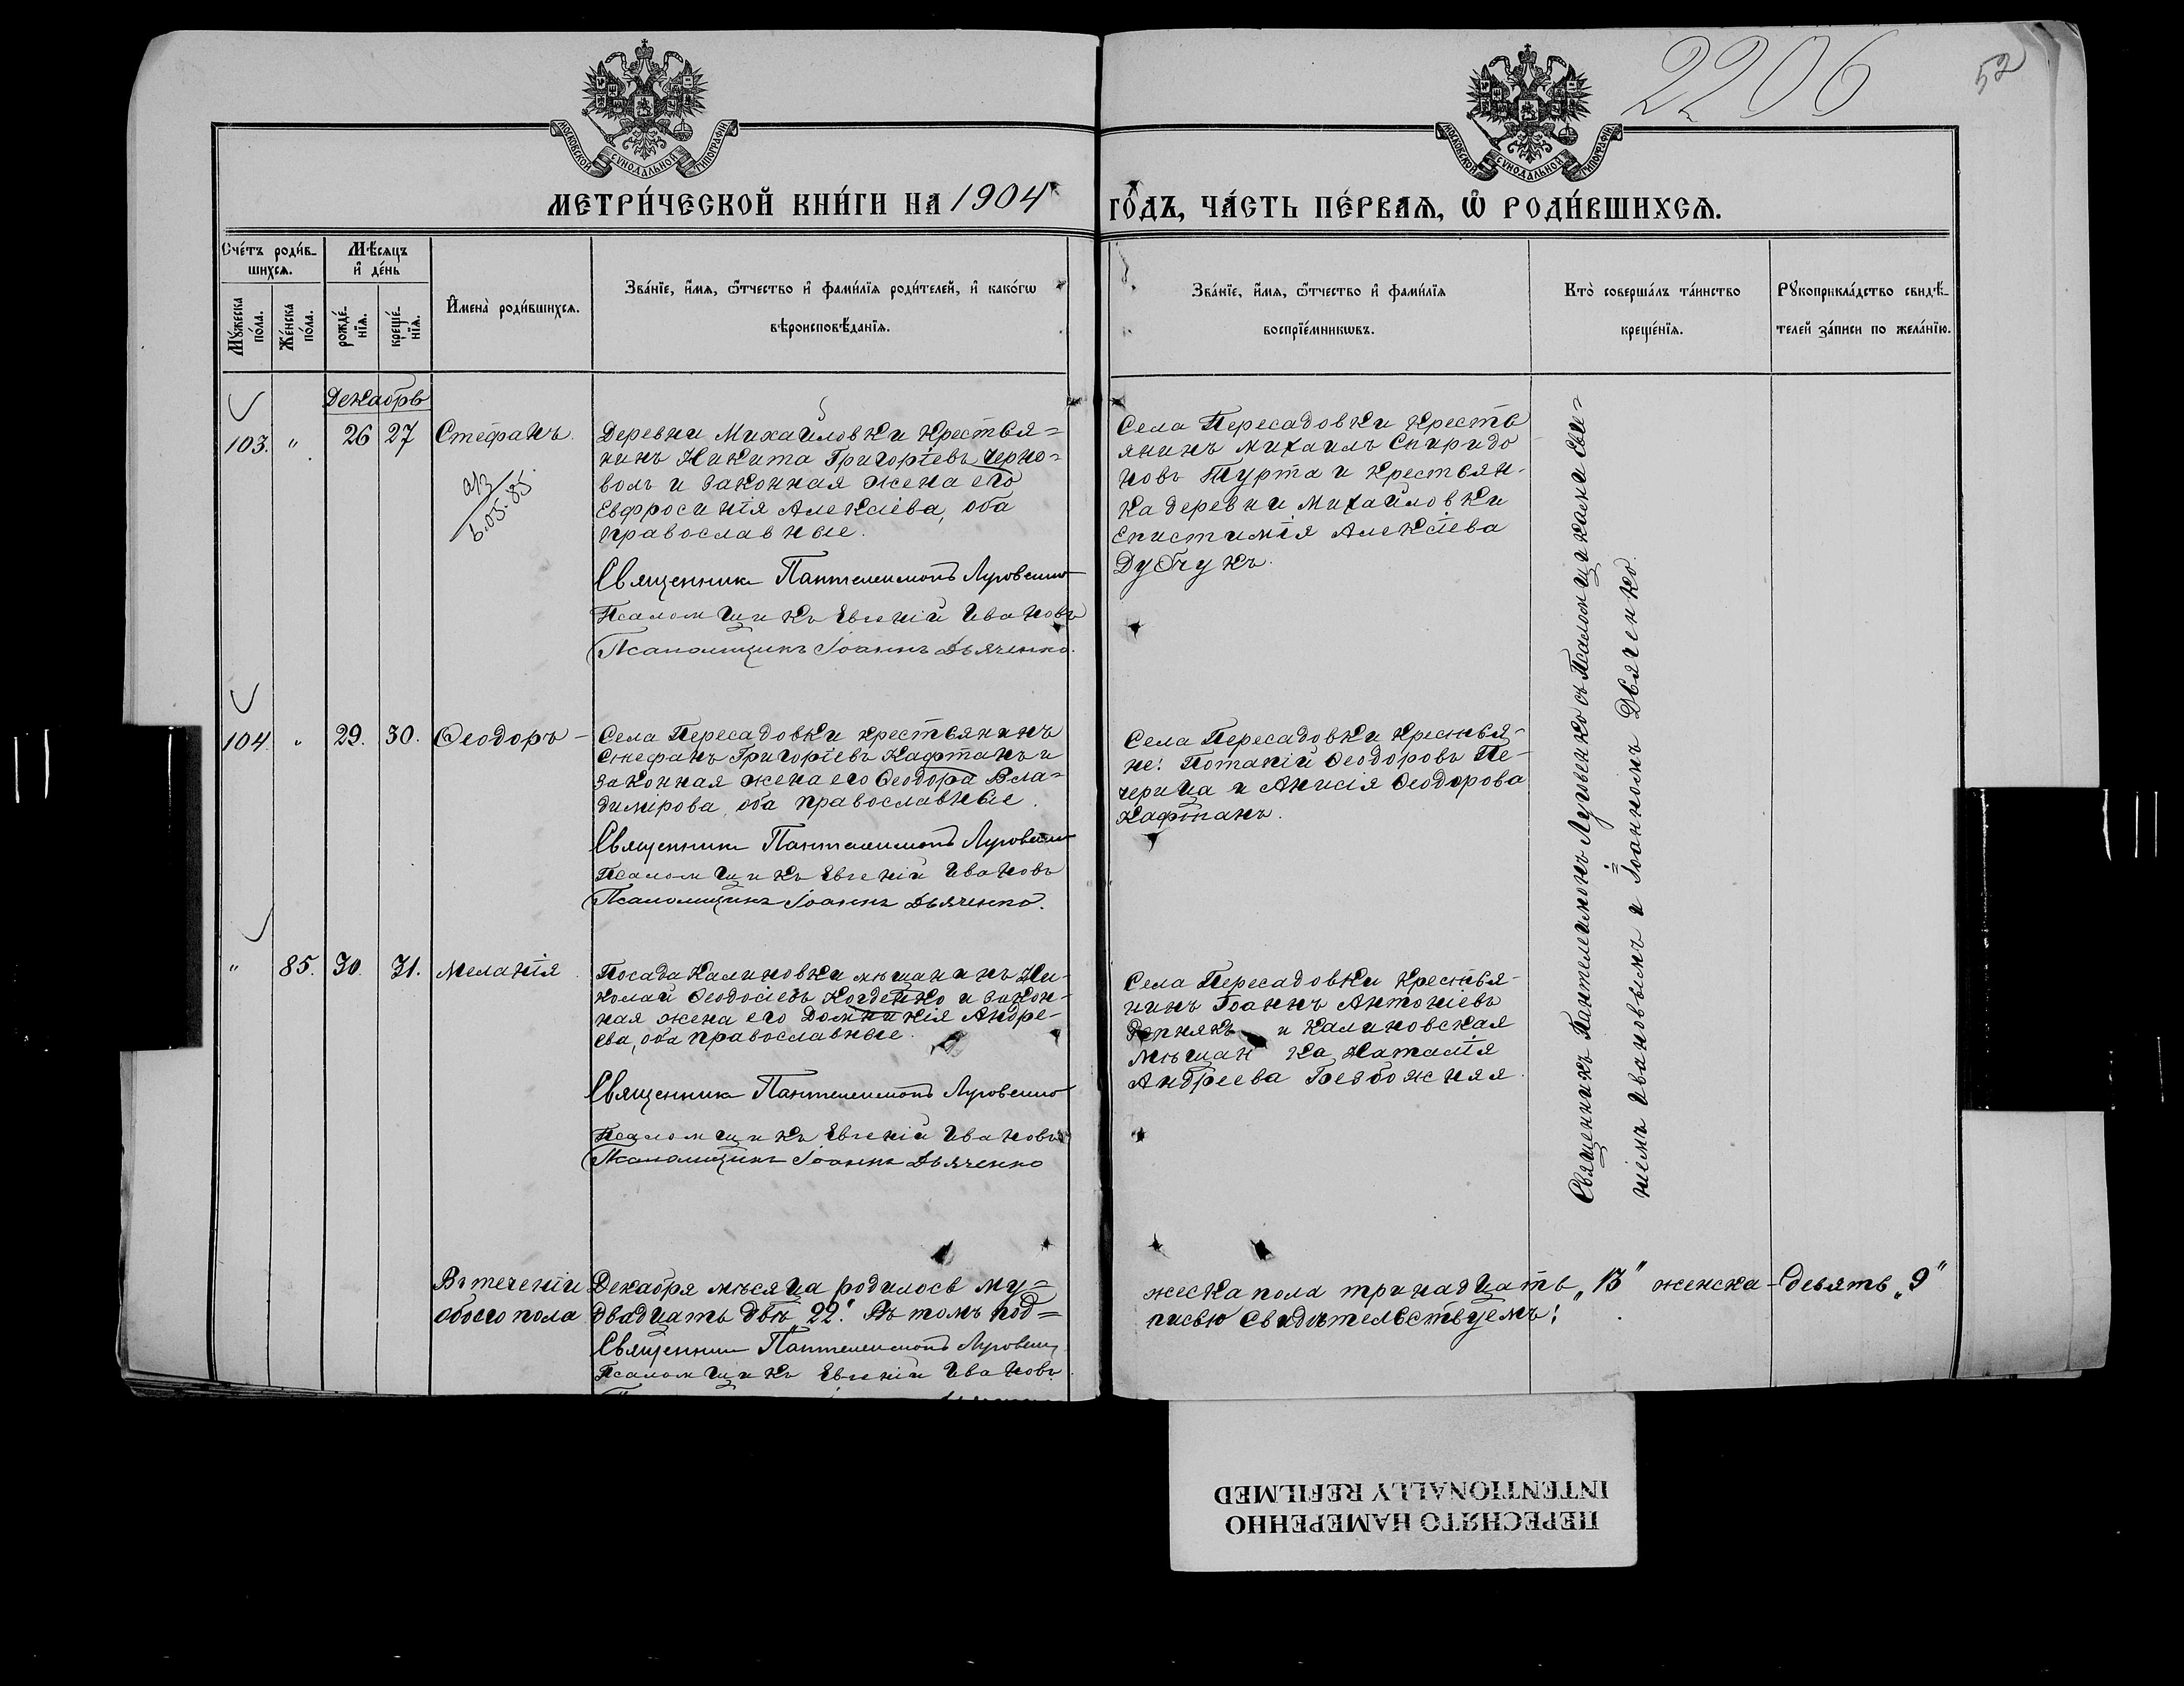 2206
52
МОСКОВСКОЙ СУНОДАЛЬНОЙ ТИПОГРАФІИ
МОСКОВСКОЙ СУНОДАЛЬНОЙ ТИПОГРАФІИ
МЕТРИ́ЧЕСКОЙ КНИ́ГИ НА 1904 ГО́ДЪ, ЧА́СТЬ ПЕ́РВАѦ, Ѡ҆ РОДИ́ВШИХСѦ.
Сче́тъ роди́в-
шихсѧ.
Мꙋ́жеска
по́ла.
Же́нска
по́ла.
Мѣ́сѧцъ
и҆ де́нь
рожде́-
нїѧ.
креще́-
нїѧ.
И҆мена̀ роди́вшихсѧ.
Зва́нїе, и҆́мѧ, ѻ҆́тчество и҆ фами́лїѧ роди́телей, и҆ како́гѡ
вѣроисповѣ́данїѧ.
Зва́нїе, и҆́мѧ, ѻ҆́тчество и҆ фами́лїѧ
воспрїе́мникѡвъ.
Кто̀ соверша́лъ та́инство
креще́нїѧ.
Рꙋкоприкла́дство свидѣ́-
телей за́писи по жела́нїю.
Декабрь
103. " 26 27 Стефанъ.
Деревни Михайловки крестья=
нинъ Никита Григоріевъ Черно=
волъ и законная жена его
Евфросинія Алексіева, оба
православные.
Священникъ Пантелеимонъ Луговенко
Псаломщикъ Евгеній Ивановъ
Псаломщикъ Іоаннъ Дьяченко.
6.05.85.
Села Пересадовки кресть
янинъ Михаилъ Спиридо
новъ Турта и крестьян-
ка деревни Михайловки
Епистимія Алексіева
Дубчукъ.
104 " 29. 30. Ѳеодоръ-
Села Пересадовки крестьянинъ
Стефанъ Григоріевъ Кафтанъ и
законная жена его Ѳеодора Вла=
димірова, оба православные.
Священникъ Пантелеимонъ Луговенко
Псаломщикъ Евгеній Ивановъ
Псаломщикъ Іоаннъ Дьяченко.
Села Пересадовки крестья-
не: Потапій Ѳеодоровъ Пе-
черица и Анисія Ѳеодорова
Кафтанъ.
" 85. 30. 31. Меланія
Посада Калиновки мѣщанинъ Ни-
колай Ѳеодосіевъ и закон-
ная жена его Домникія Андре-
ева, оба православные.
Священникъ Пантелеимонъ Луговенко
Псаломщикъ Евгеній Ивановъ
Псаломщикъ Іоаннъ Дьяченко
Села Пересадовки крестья-
нинъ Іоаннъ Антоніевъ
Репнякъ и Калиновская
мѣщанка Наталія
Андреева Безбожняя.
Священникъ Пантелеимонъ Луговенко съ Псаломщиками Евге=
ніемъ Ивановымъ и Іоанномъ Дьяченко.
Въ теченіи Декабря мѣсяца родилось му=
жеска пола тринадцать „13" женска-девять „9"
обоего пола двадцать двѣ „22". Въ томъ под=
писью свидѣтельствуемъ:
Священникъ Пантелеимонъ Луговенко
Псаломщикъ Евгеній Ивановъ.
ПЕРЕСНЯТО НАМЕРЕННО
INTENTIONALLY REFILMED